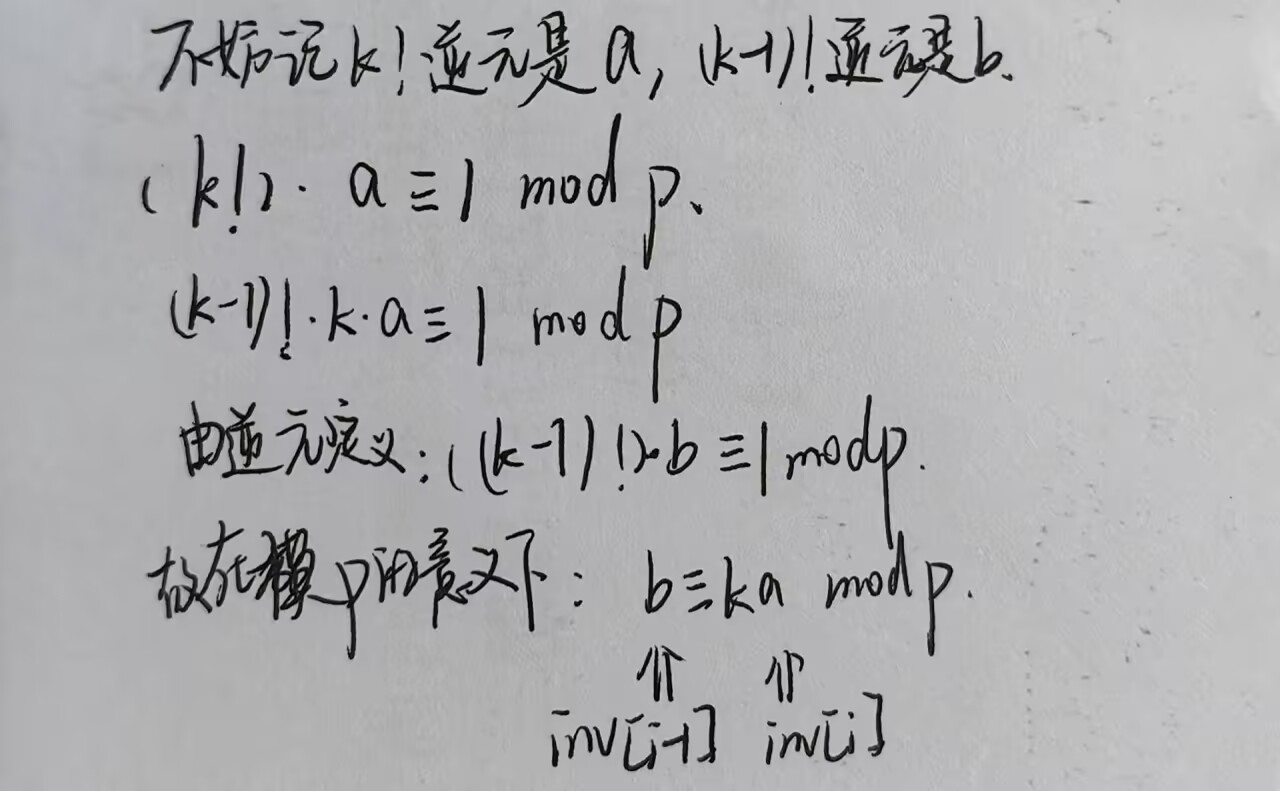 不妨记k!逆元是a, (k-1)!逆元是b.
(k!)· a≡1 mod p.
(k-1)!·k·a≡1 mod p
由逆元定义:((k-1)!)·b≡1 mod p.
故在模p的意义下: b≡ka mod p.
⇑ ⇑
inv[i-1] inv[i]